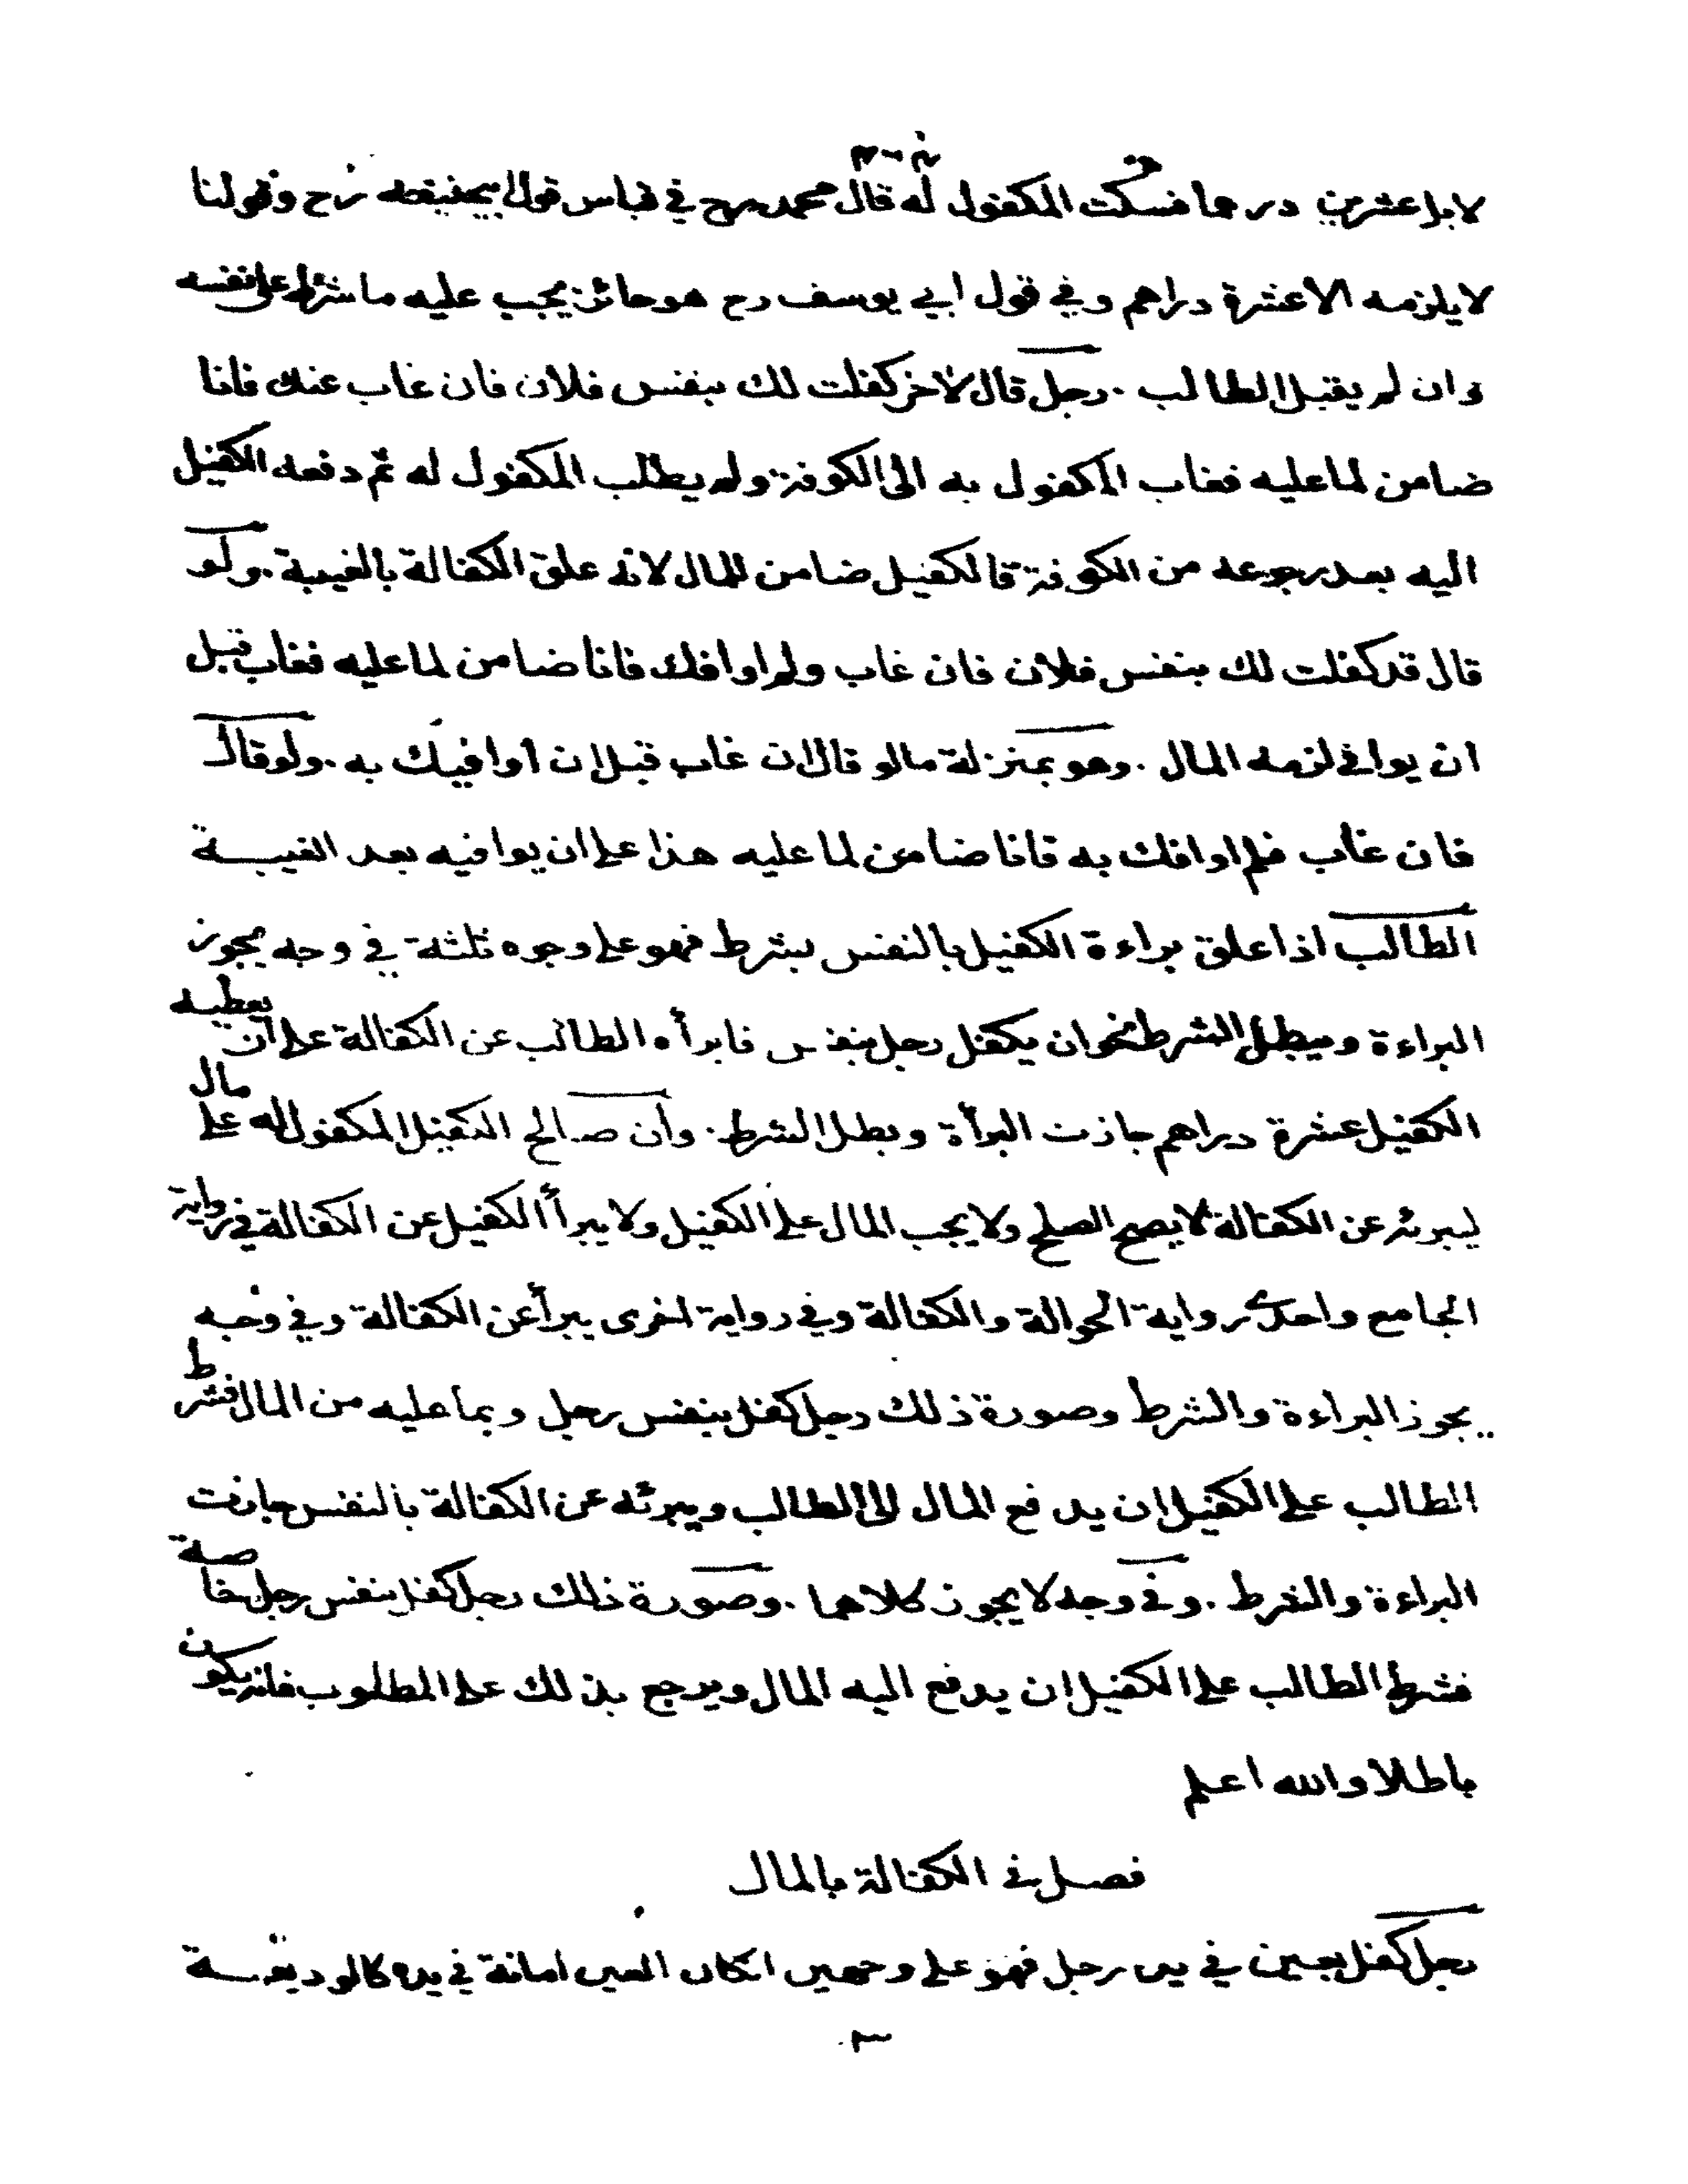 لا بل عشرين درهما فسكت المكفول له قال محمد رح في قياس قول ابيحنيفه رح وقولنا
لا يلزمه الا عشرة دراهم وفي قول ابي يوسف رح هو جائز يجب عليه ما شرط على نفسه
وان لم يقبل الطالب . رجل قال لاخر كفلت لك بنفس فلان فان غاب عنك فانا
ضامن لما عليه فغاب المكفول به الى الكوفة ولم يطلب المكفول له ثم دفعه الكفيل
اليه بعد رجوعه من الكوفة فالكفيل ضامن للمال لانه علق الكفالة بالغيبة . ولو
قال قد كفلت لك بنفس فلان فان غاب ولم اوافك فانا ضامن لما عليه فغاب قبل
ان يوافي لزمه المال . وهو بمنزلة ما لو قال ان غاب قبل ان أوافيك به . ولو قال
فان غاب فلم اوافك به فانا ضامن لما عليه هذا على ان يوافيه بعد الغيبـــة
الطالب اذا علق براءة الكفيل بالنفس بشرط فهو على وجوه ثلثة في وجه يجوز
البراءة ويبطل الشرط نحو ان يكفل رجل بنفس فابرأه الطالب عن الكفالة على ان يعطيه
الكفيل عشرة دراهم جازت البرأة وبطل الشرط . وان صالح الكفيل المكفول له على مال
ليبرئه عن الكفالة لا يصح الصلح ولا يجب المال على الكفيل ولا يبرأ الكفيل عن الكفالة في رواية
الجامع واحدى رواية الحوالة والكفالة وفي رواية اخرى يبرأ عن الكفالة وفي وجه
يجوز البراءة والشرط وصورة ذلك رجل كفل بنفس رجل وبما عليه من المال فشرط
الطالب على الكفيل ان يدفع المال الى الطالب ويبرئه عن الكفالة بالنفس جازت
البراءة والشرط . وفي وجه لا يجوز كلاهما . وصورة ذلك رجل كفل بنفس رجل خاصة
فشرط الطالب على الكفيل ان يدفع اليه المال ويرجع بذلك على المطلوب فانه يكون
باطلا والله اعلم
فصل في الكفالة بالمال
رجل كفل بعين في يد رجل فهو على وجهين ان كان العين امانة في يده كالوديعـــة